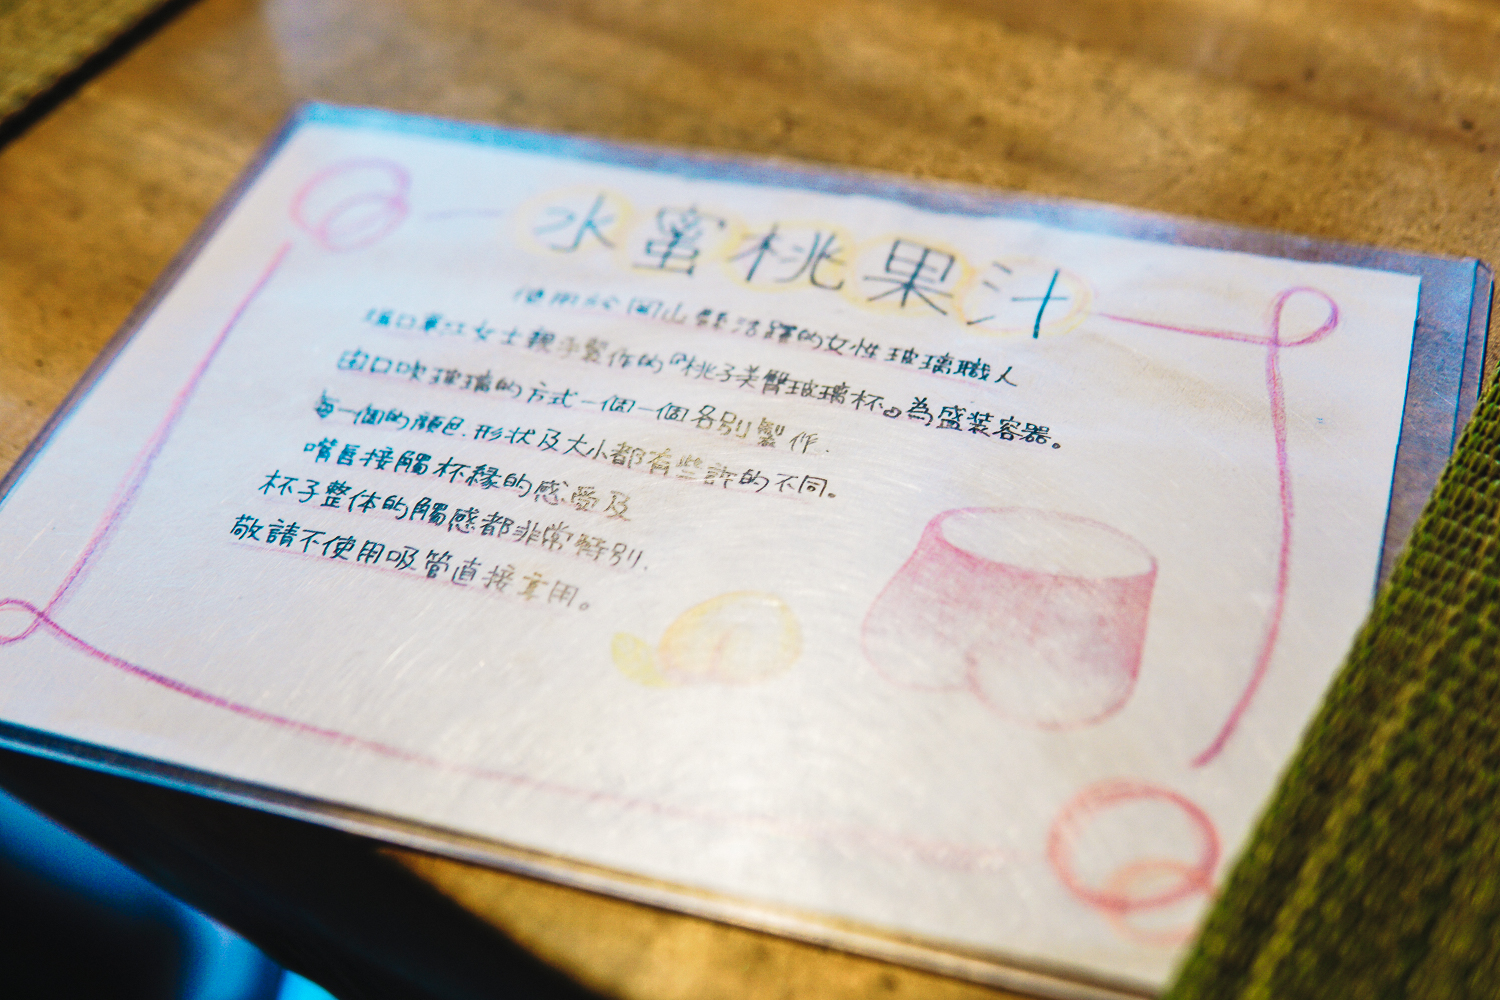 水蜜桃果汁
使用於岡山縣活躍的女性玻璃職人
堀口華江女士親手製作的『桃子美臀玻璃杯』為盛装容器。
由口吹玻璃的方式一個一個各別製作.
每一個的顏色.形状及大小都有些許的不同。
嘴唇接觸杯緣的感受及
杯子整体的觸感都非常特別.
敬請不使用吸管直接享用。